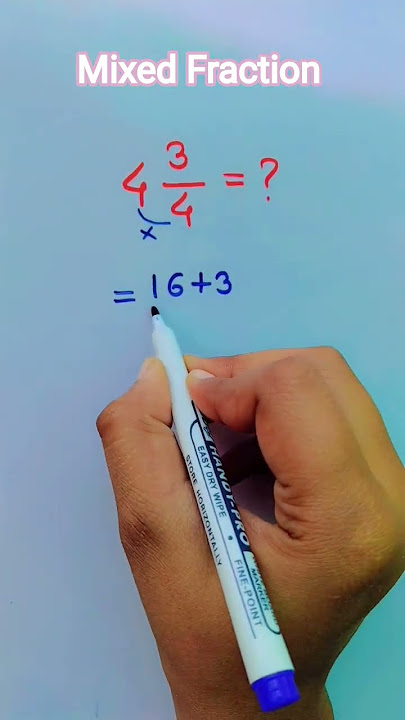 Mixed Fraction
4 3/4 = ?
×
= 16+3
HANDY-PRO
EASY DRY WIPE • FINE-POINT
MARKER
STORE HORIZONTALLY